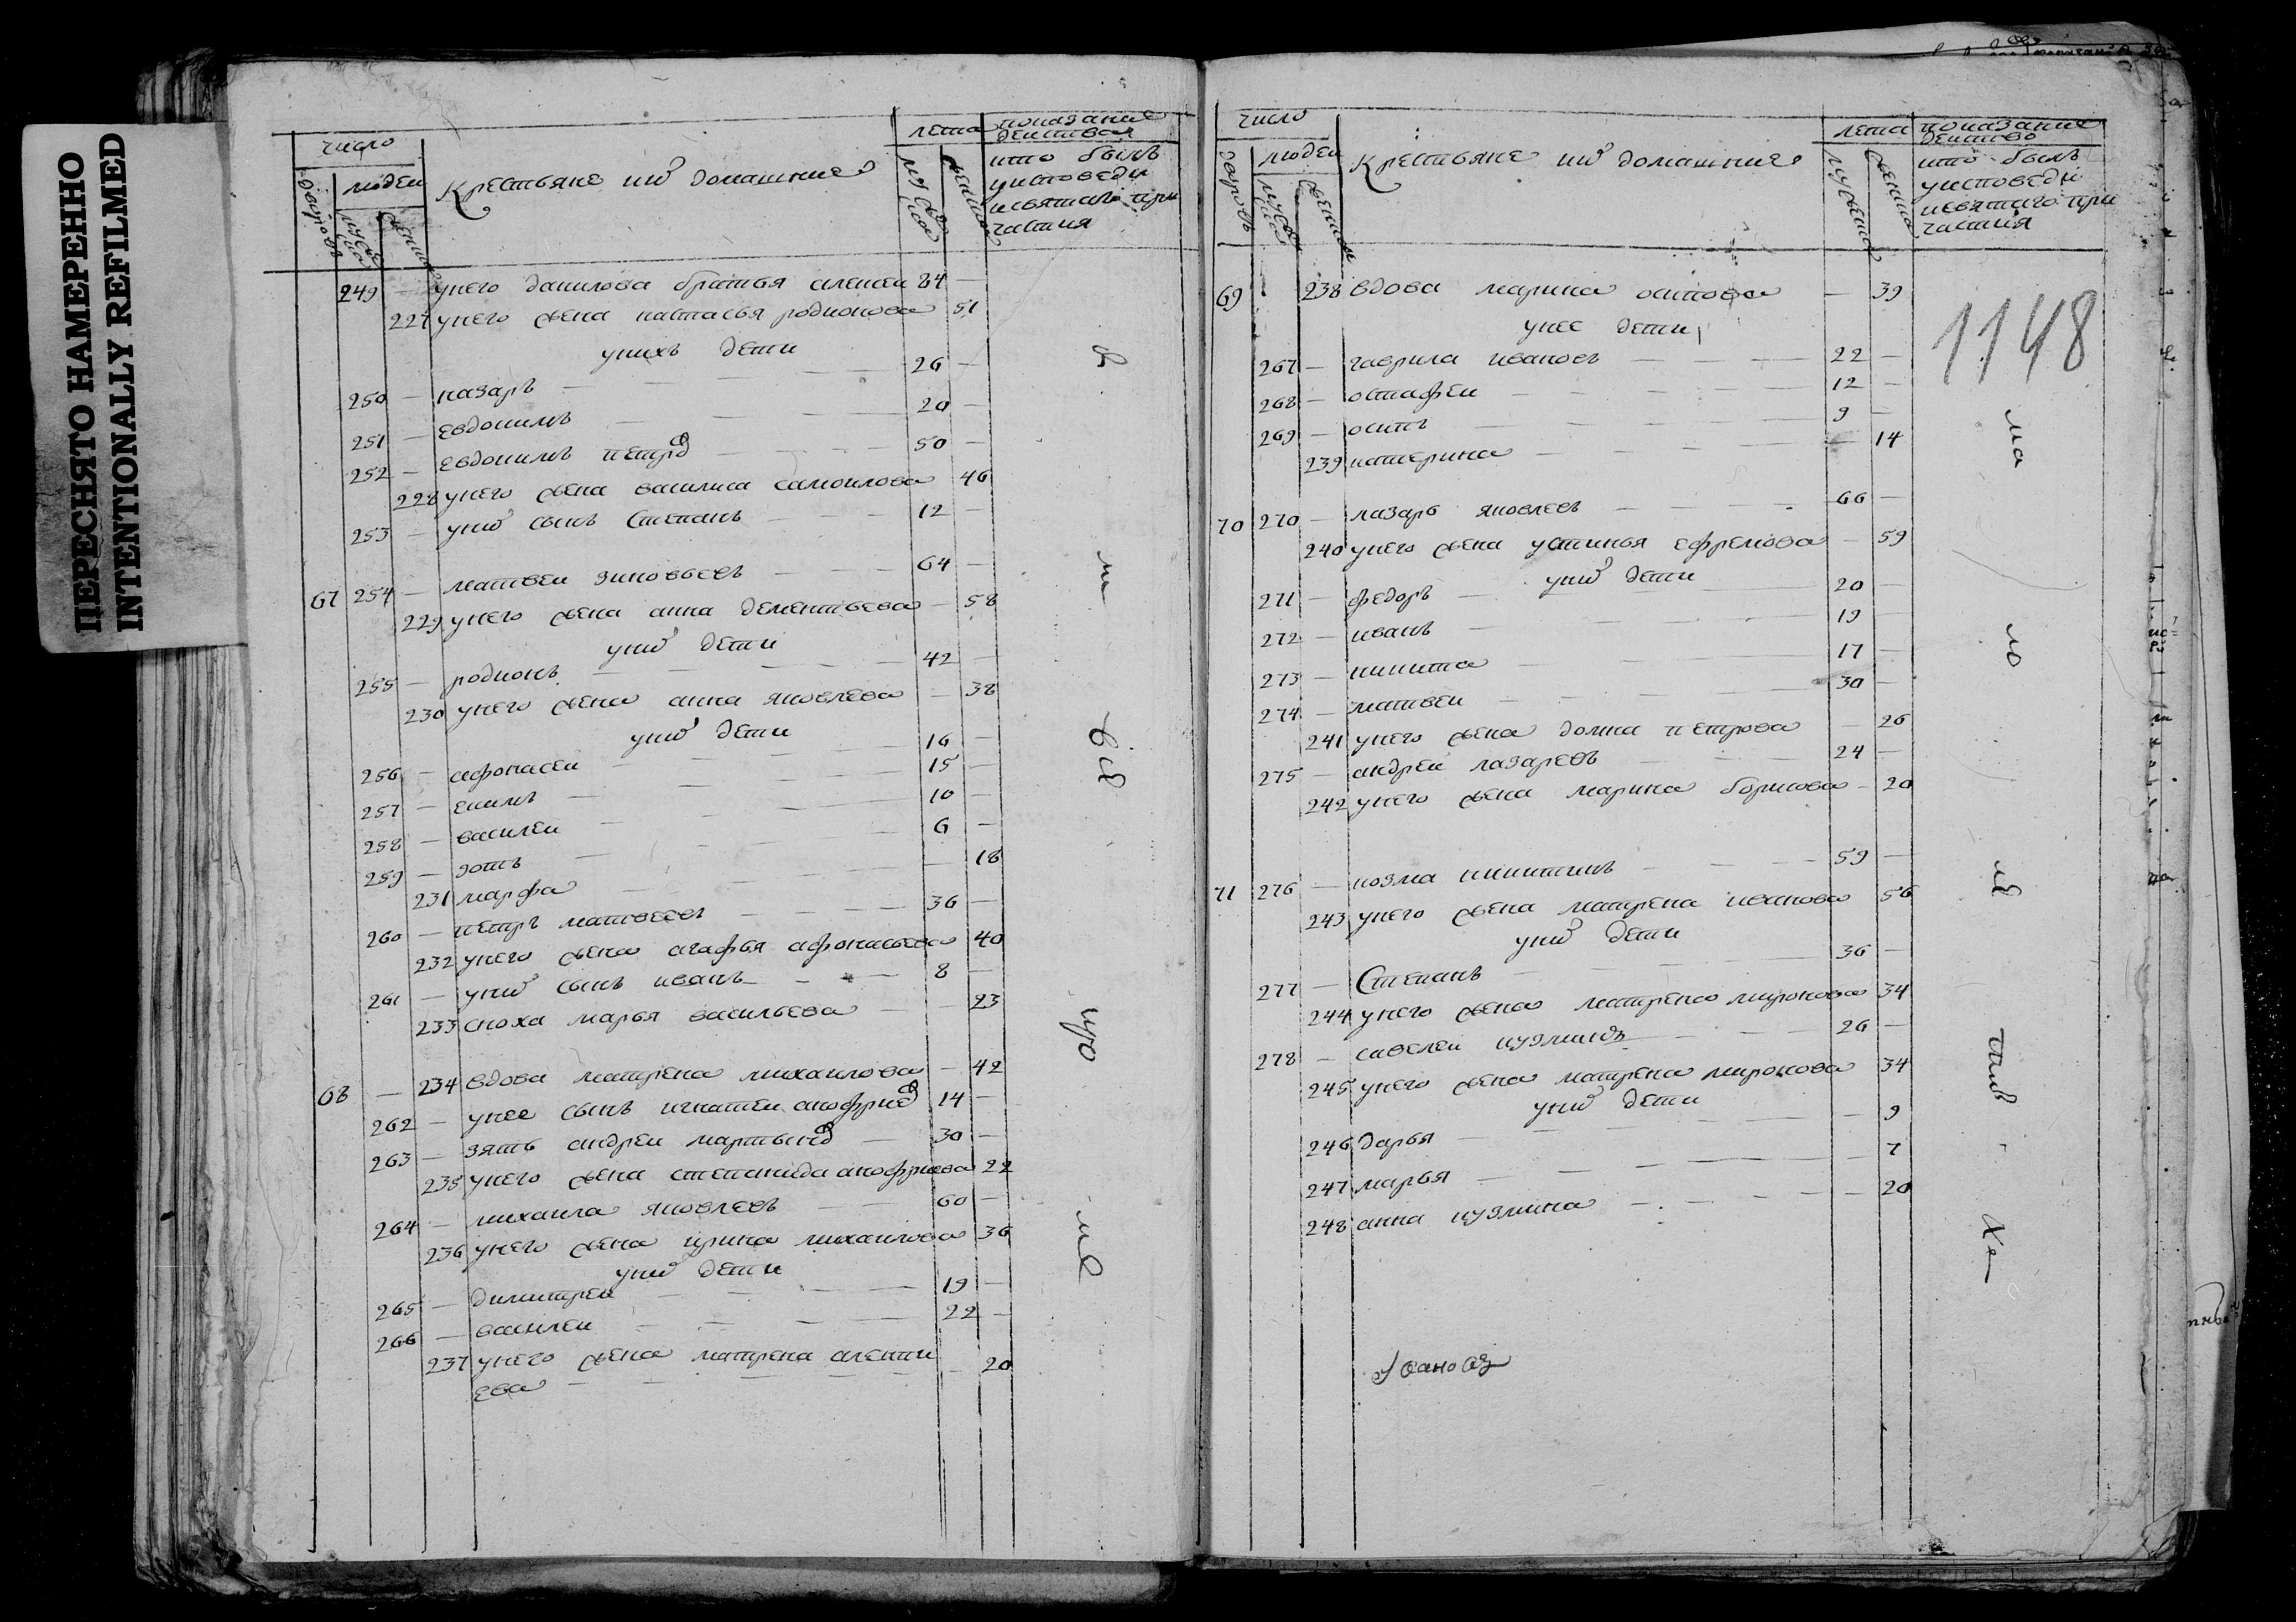 ПЕРЕСНЯТО НАМЕРЕННО
INTENTIONALLY REFILMED
число
людеи
дворовъ
мужеска
женска
Крестьяне ихъ домашние
лета
мужеска
женска
показание
деиствия
кто былъ
уисповеди
исвятаго при
частия
249 — унего данилова братья алексеи 84 —
227 унего жена настасья родионова 51
унихъ дети
250 — назаръ — 26 —
251 — евдокимъ — 20 —
252 — евдокимъ петровъ — 50 —
228 унего жена василиса самоилова 46
253 — унихъ сынъ Степанъ — 12 —
67 254 — матвеи зиновьевъ — 64 —
229 унего жена анна дементьева — 58
унихъ дети
255 — родионъ — 42 —
230 унего жена анна яковлева — 38
унихъ дети
256 — афонасеи — 16 —
257 — екимъ — 15 —
258 — василеи — 10 —
259 — зотъ — 6 —
231 марфа — 18
260 — петръ матвеевъ — 36 —
232 унего жена агафья афонасьева 40
261 — унихъ сынъ иванъ — 8 —
233 сноха марья васильева — 23
68 — 234 вдова матрена михаилова — 42
262 — унее сынъ игнатеи анофриевъ 14 —
263 — зять андреи мартыновъ — 30 —
235 унего жена степанида анофриева 22
264 — михаила яковлевъ — 60 —
236 унего жена ирина михаилова 36
унихъ дети
265 — димитреи — 19 —
266 — василеи — 22 —
237 унего жена матрена алекси
ева — 20
число
людеи
дворовъ
мужеска
женска
Крестьяне ихъ домашние
лета
мужеска
женска
показание
деиство
кто былъ
уисповеди
исвятаго при
частия
1148
69 238 вдова марина осипова — 39
унее дети
267 — гаврила ивановъ — 22 —
268 — остафеи — 12 —
269 — осипъ — 9 —
239 катерина — 14
70 270 — лазарь яковлевъ — 66 —
240 унего жена устинья ефремова — 59
унихъ дети
271 — федоръ — 20 —
272 — иванъ — 19 —
273 — никита — 17 —
274 — матвеи — 30 —
241 унего жена домна петрова — 26
275 — андреи лазаревъ — 24 —
242 унего жена марина борисова — 20
71 276 — козма никитинъ — 59 —
243 унего жена матрена иванова 56
унихъ дети
277 — Степанъ — 36 —
244 унего жена матрена миронова 34
278 — савелеи кузминъ — 26 —
245 унего жена матрена миронова 34
унихъ дети
246 дарья — 9
247 марья — 7
248 анна кузмина — 20
Iоановъ